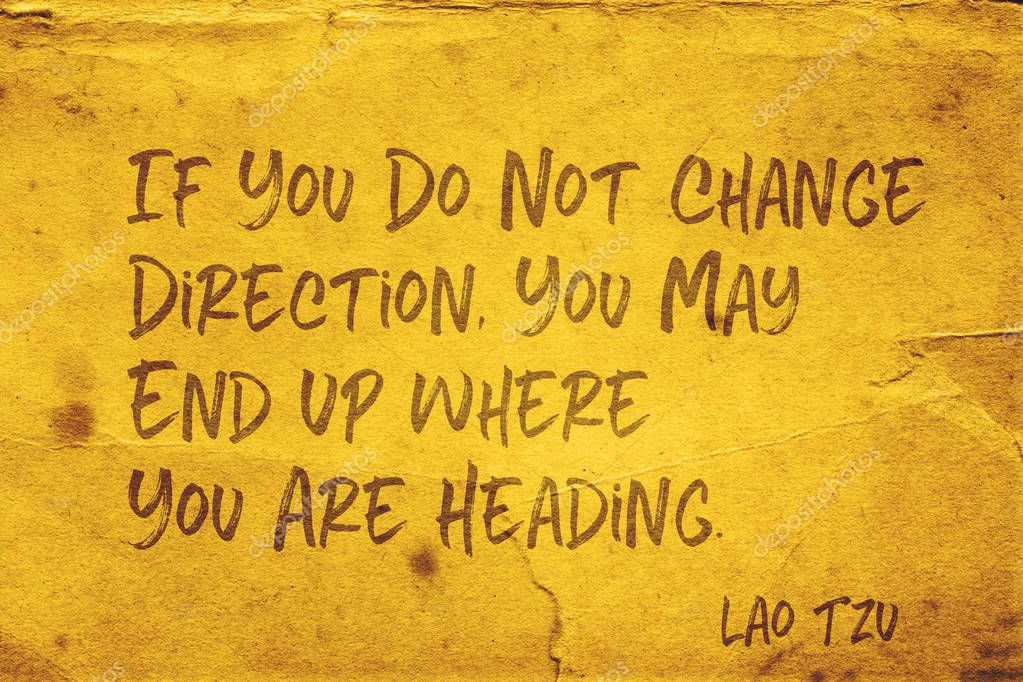 If You Do Not Change
Direction, You May
End up where
You Are Heading.
Lao Tzu
depositphotos
depositphotos
depositphotos
depositphotos
depositphotos
depositphotos